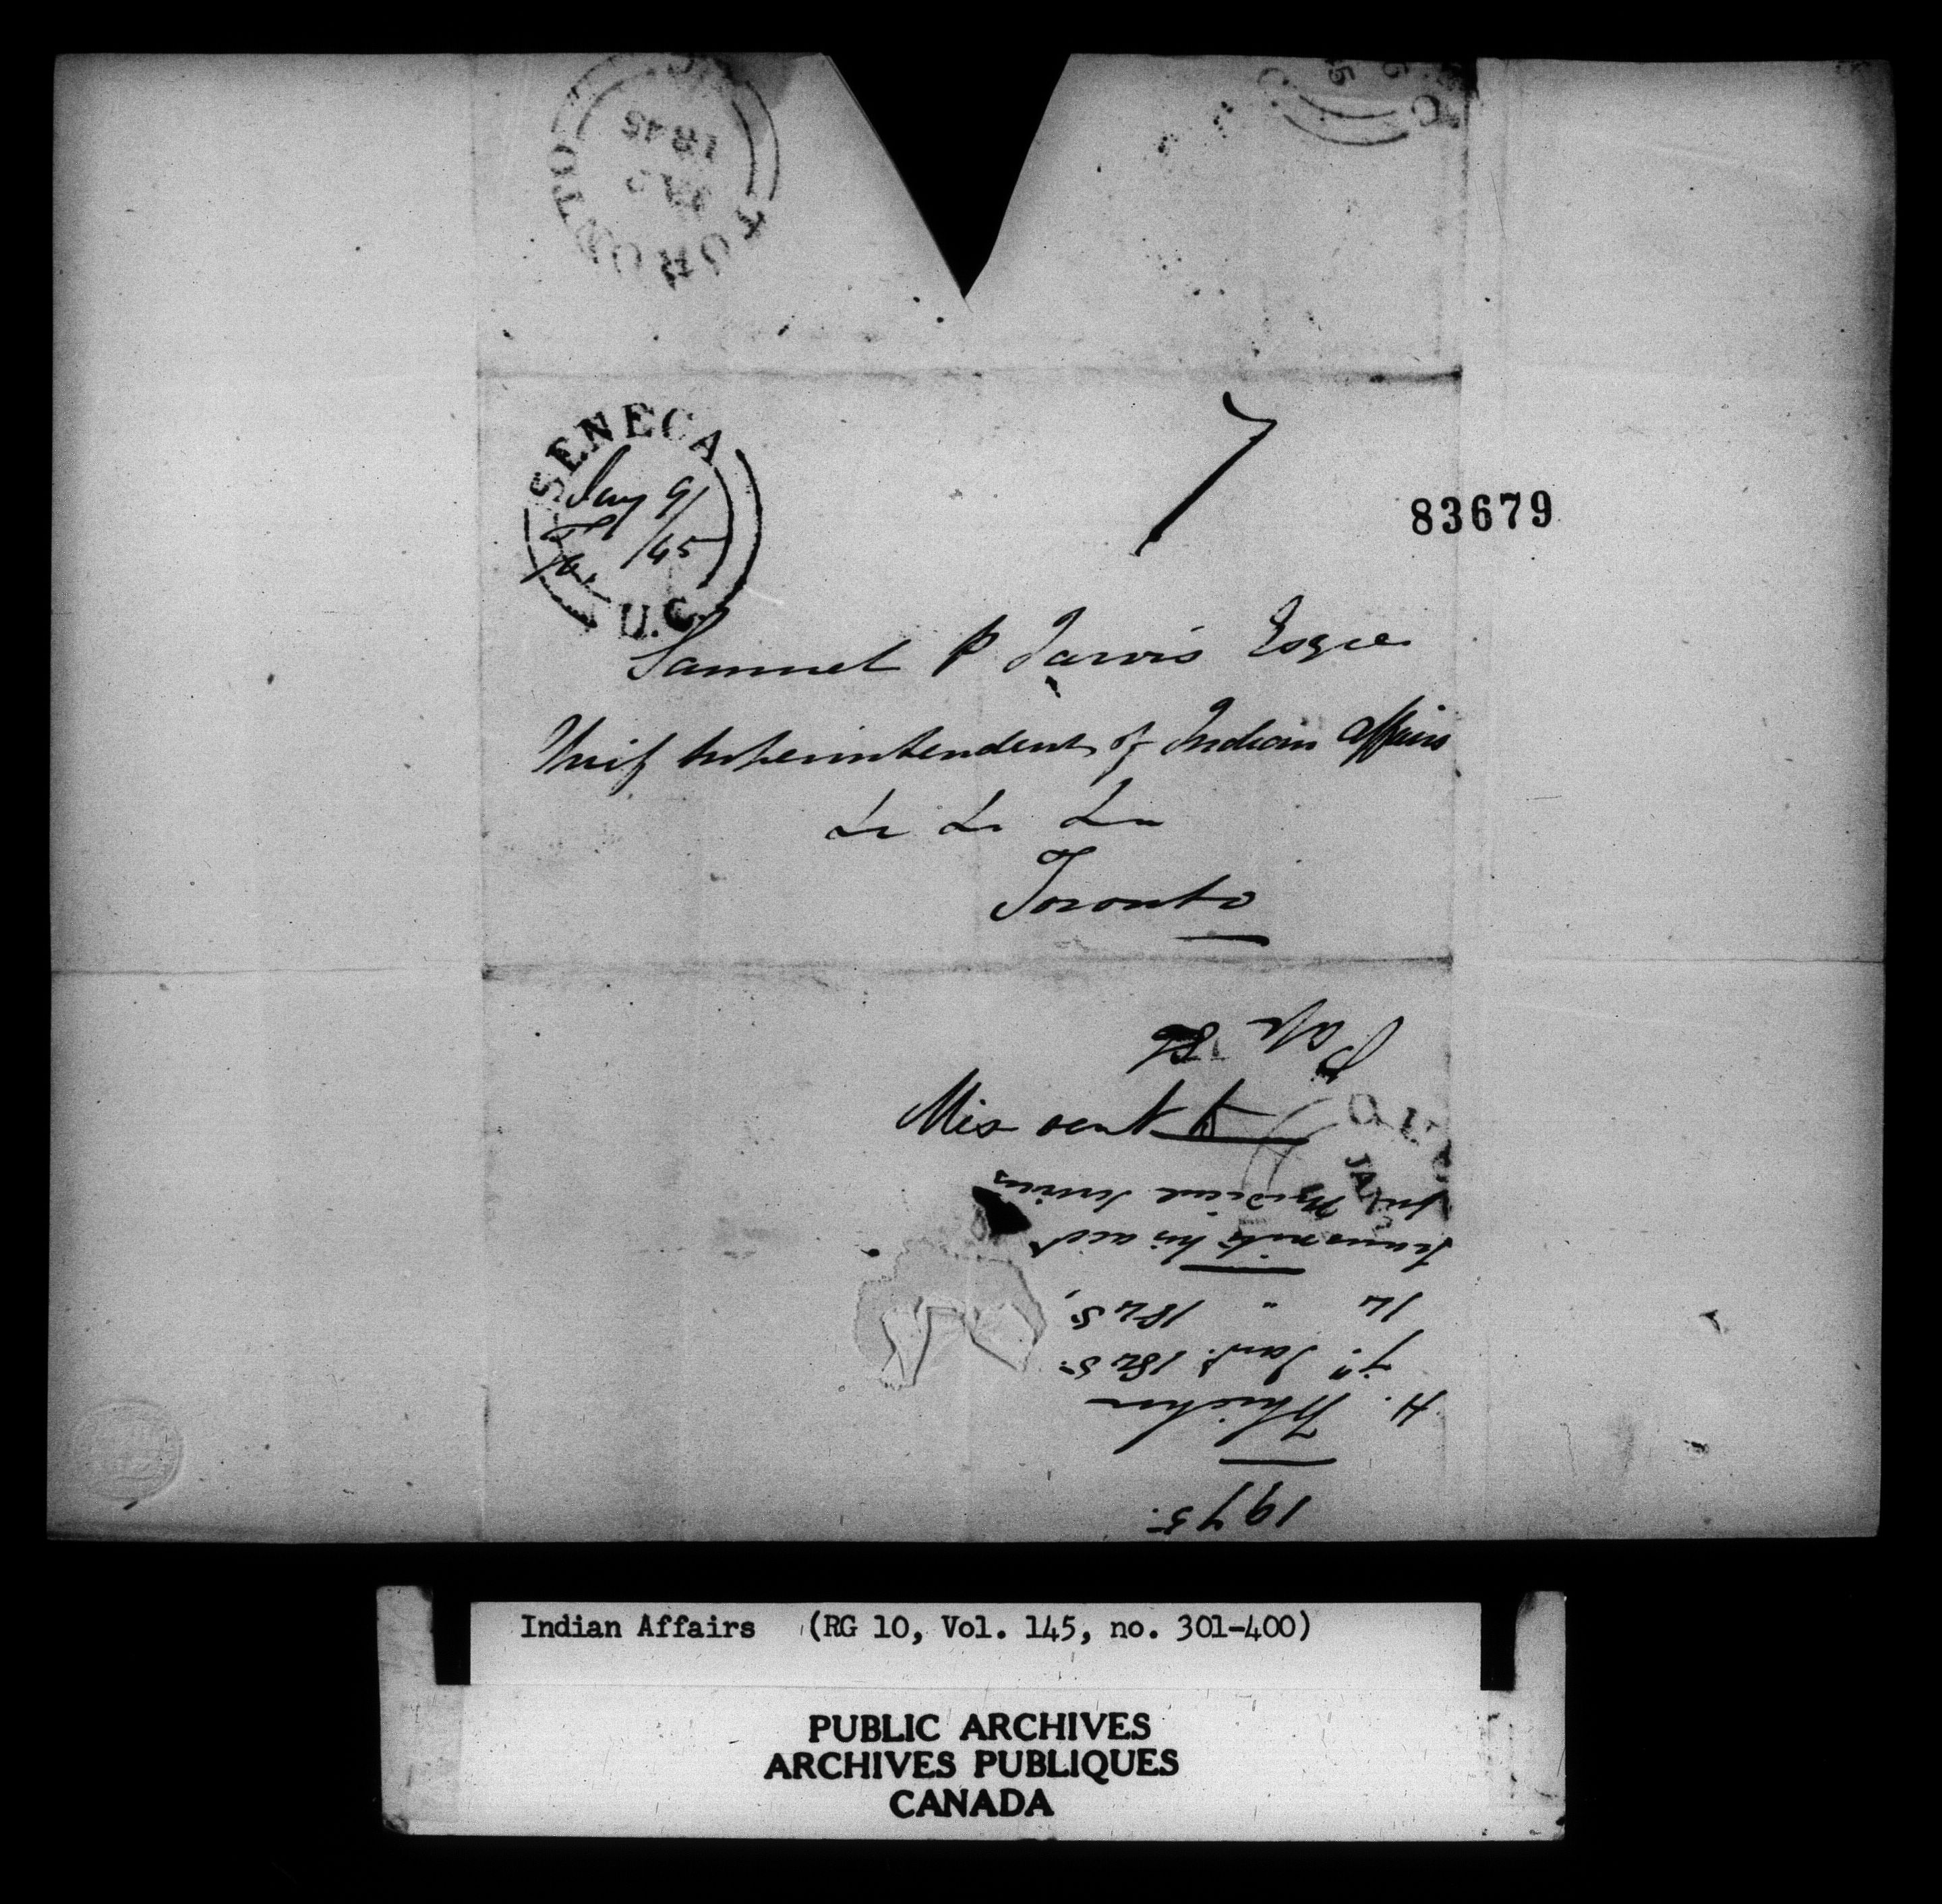 TORONTO
1845
SENECA
Jany 9/
/45
U.C.
7
83679
Samuel P Jarvis Esqre
Chief Superintendent of Indian Affairs
&c &c &c
Toronto
Mis sent to
JAN
1975.
H.
9th Jany. 1845
14 " 1845,
Transmits his acct
for Medical Services
Page 86
Indian Affairs (RG 10, Vol. 145, no. 301-400)
PUBLIC ARCHIVES
ARCHIVES PUBLIQUES
CANADA